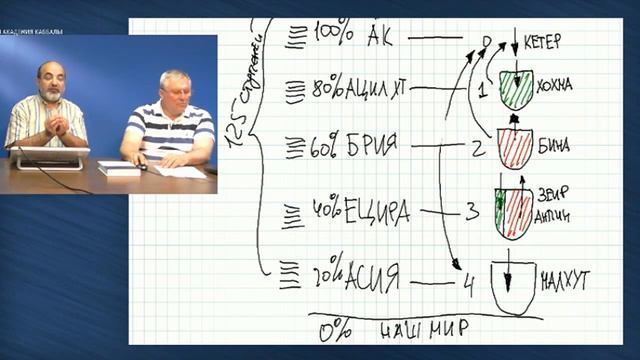 АКАДЕМИЯ КАББАЛЫ
125 ступеней
100% АК 0 КЕТЕР
80% АЦИЛУТ 1 ХОХМА
60% БРИЯ 2 БИНА
40% ЕЦИРА 3 ЗЕИР АНПИН
20% АСИЯ 4 МАЛХУТ
0% НАШ МИР